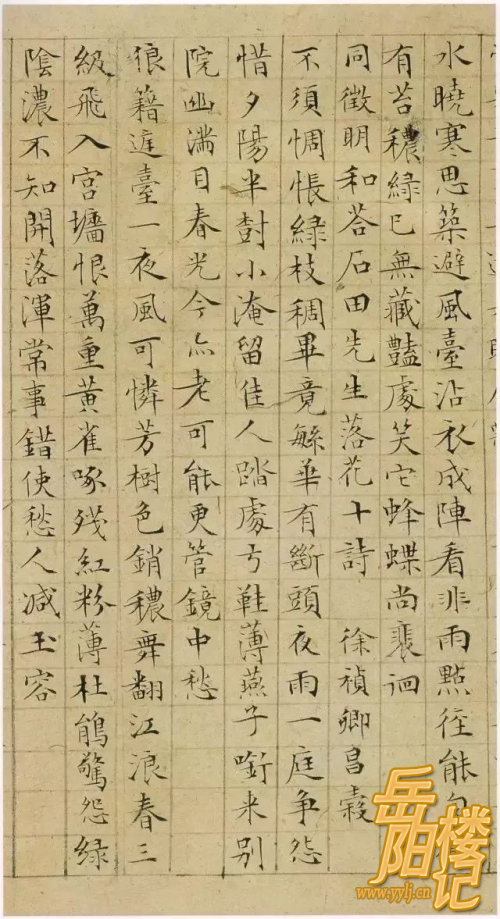 水曉寒思築避風臺沾衣成陣看非雨點徑能
有苔穠綠已無藏豔處笑它蜂蝶尚裴迴
同徵明和荅石田先生落花十詩 徐禎卿昌穀
不須惆悵綠枝稠畢竟緐華有斷頭夜雨一庭爭怨
惜夕陽半樹小淹留佳人踏處弓鞋薄燕子嘲來別
院幽滿目春光今亦老可能更管鏡中愁
狼籍遅臺一夜風可憐芳樹色銷穠舞翻江浪春三
級飛入宮墻恨萬重黃雀啄殘紅粉薄杜鵑驚怨綠
陰濃不知開落渾常事錯使愁人減玉容
岳阳楼记
www.yylj.cn